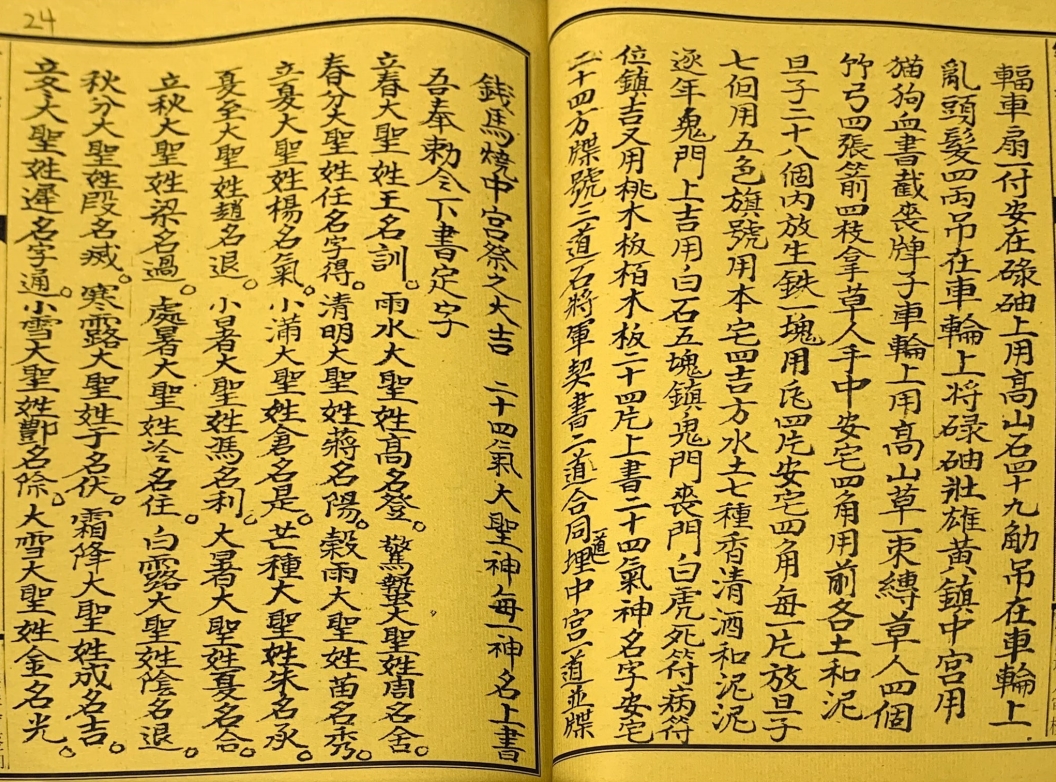 輻車扇一付安在碌砷上用髙山石四十九觔吊在車輪上
亂頭髮四両吊在車輪上将碌砷壯雄黃鎮中宮用
猫狗血書截丧牌子車輪上用高山草一束縛草人四個
竹弓四張箭四枝拿草人手中安宅四角用前各土和泥
旦子二十八個内放生鉄一塊用瓦四片安宅四角每一片放旦子
七個用五色旗號用本宅四吉方水土七種香清酒和泥泥
逐年鬼門上吉用白石五塊鎮鬼門丧門白虎死符病符
位鎮吉又用桃木板栢木板二十四片上書二十四氣神名字安宅
二十四方牒號二道石將軍契書二道合同道埋中宮一道並牒
24
錢馬燒中宮祭之大吉 二十四氣大聖神每一神名上書
吾奉勅令下書定字
立春大聖姓王名訓。雨水大聖姓高名登。驚蟄大聖姓周名舍。
春分大聖姓任名字得。清明大聖姓蔣名陽。穀雨大聖姓苗名秀。
立夏大聖姓楊名氣。小滿大聖姓倉名是。芒種大聖姓朱名永。
夏至大聖姓趙名退。小暑大聖姓馮名利。大暑大聖姓夏名合。
立秋大聖姓梁名過。處暑大聖姓冷名住。白露大聖姓陰名退。
秋分大聖姓段名滅。寒露大聖姓于名伏。霜降大聖姓成名吉。
立冬大聖姓遲名字通。小雪大聖姓酆名除。大雪大聖姓金名光。